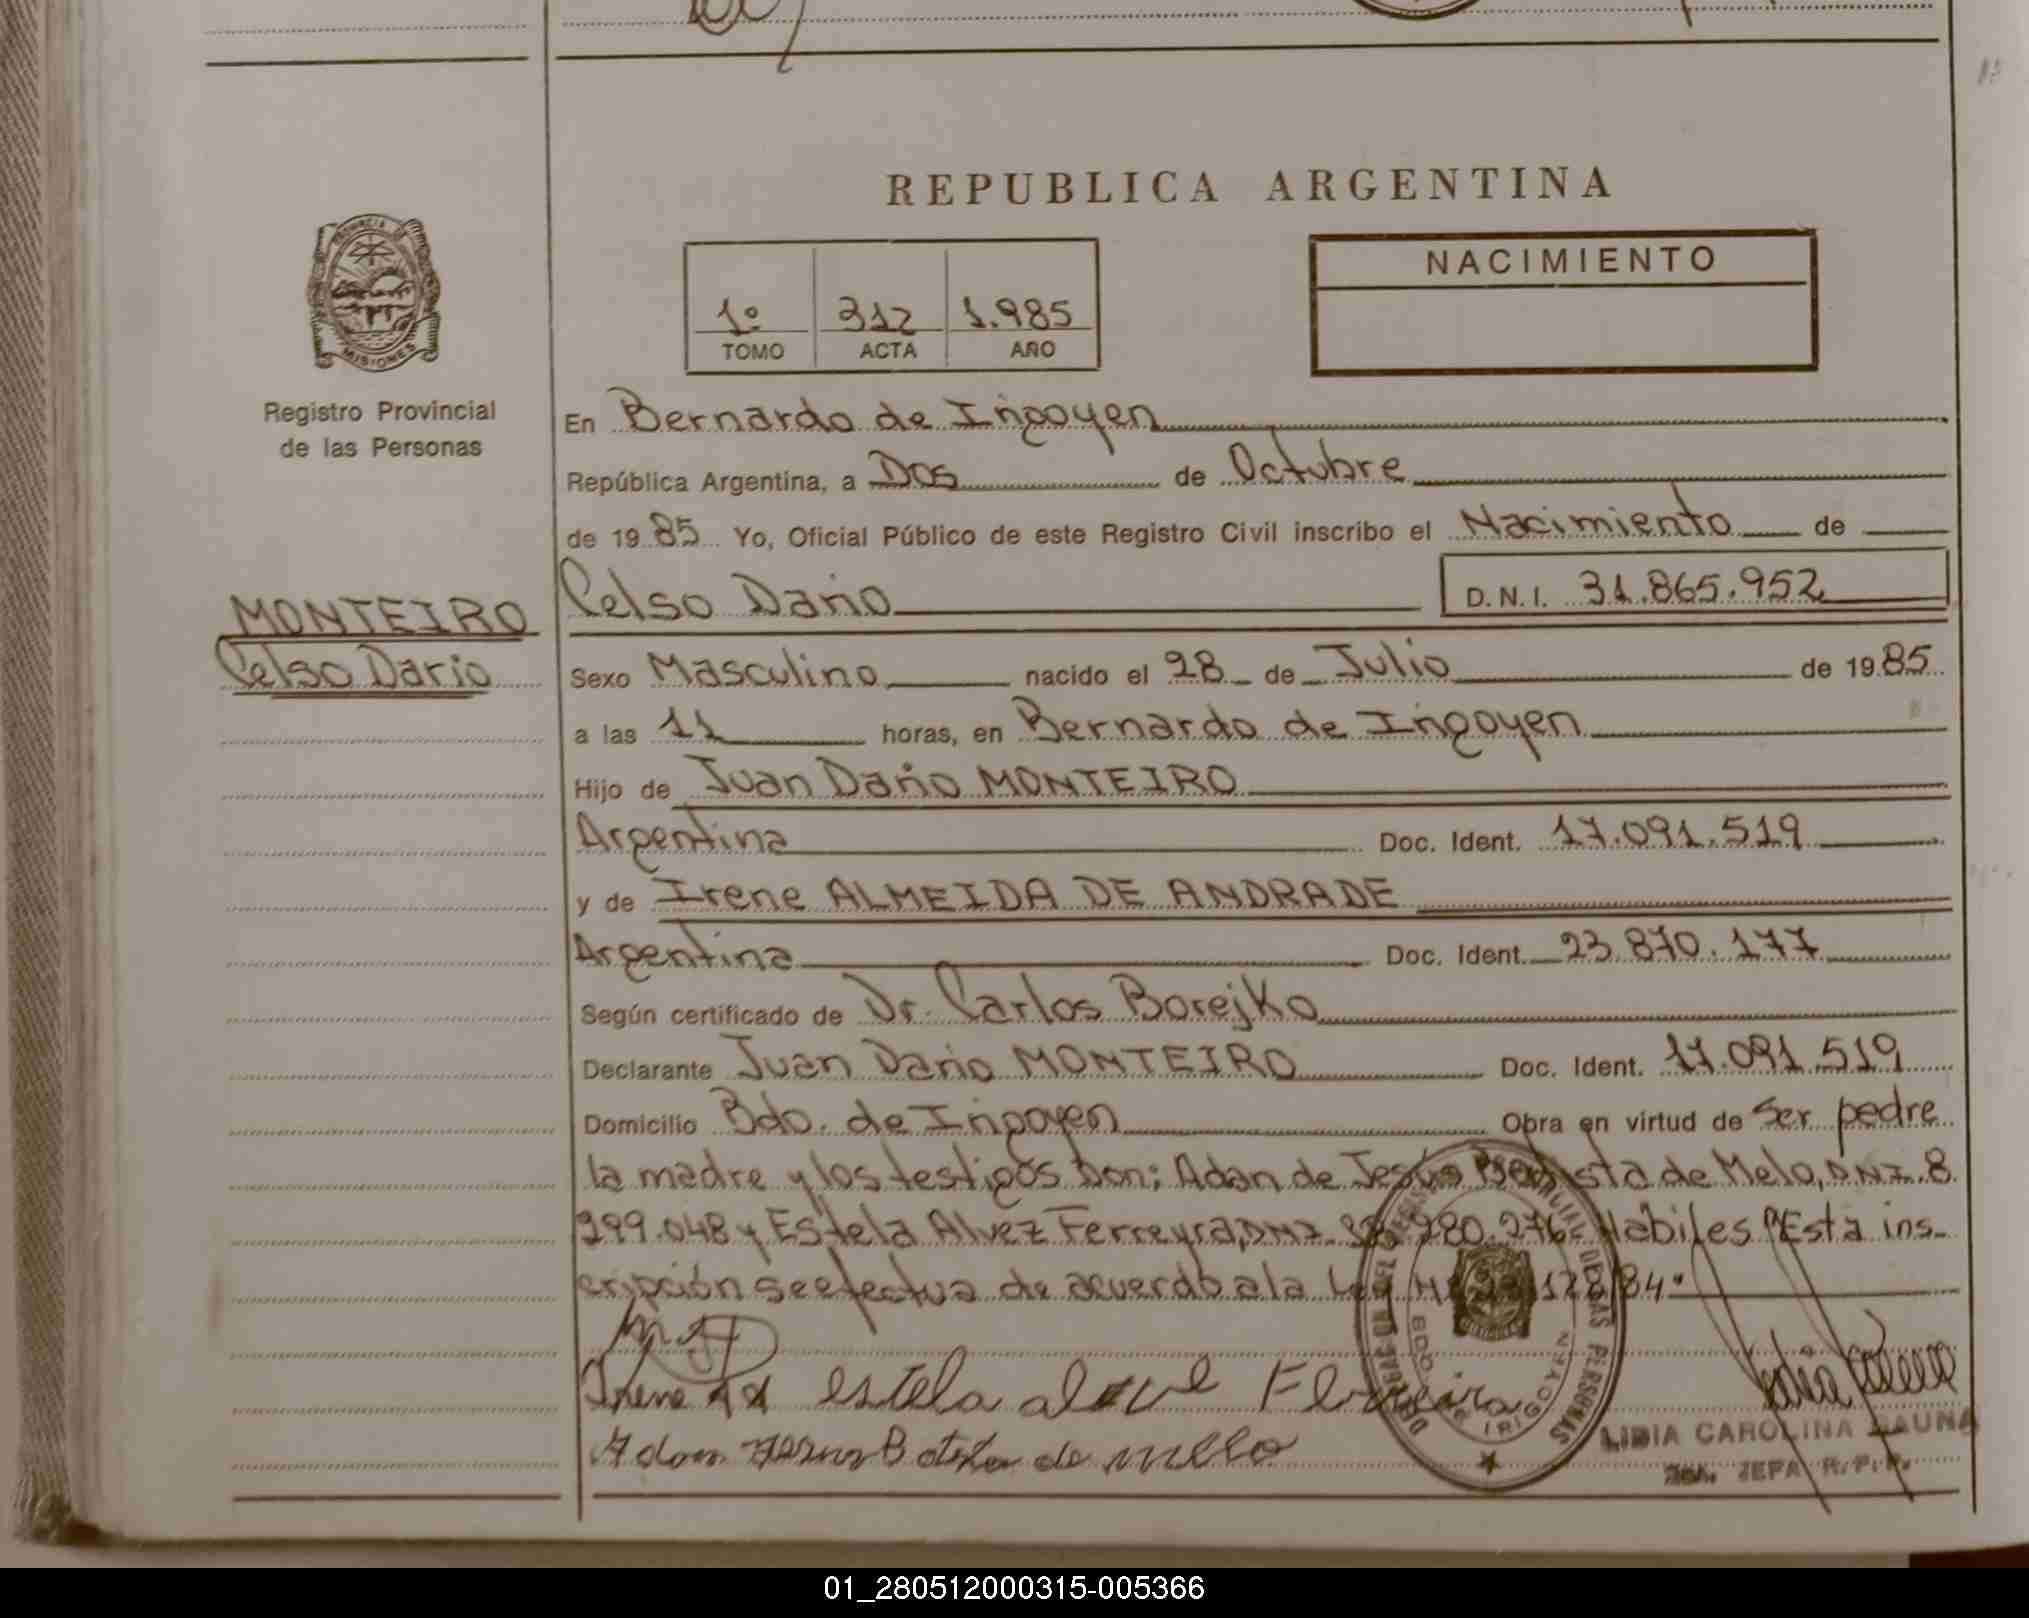 REPUBLICA ARGENTINA
PROVINCIA DE
MISIONES
Registro Provincial
de las Personas
1º 312 1.985
TOMO ACTA AÑO
NACIMIENTO
En Bernardo de Irigoyen
República Argentina, a Dos de Octubre
de 1985 Yo, Oficial Público de este Registro Civil inscribo el Nacimiento de
Celso Darío D.N.I. 31.865.952
MONTEIRO
Celso Darío
Sexo Masculino nacido el 28 de Julio de 1985
a las 11 horas, en Bernardo de Irigoyen
Hijo de Juan Darío MONTEIRO
Argentina Doc. Ident. 17.091.519
y de Irene ALMEIDA DE ANDRADE
Argentina Doc. Ident. 23.870.177
Según certificado de Dr. Carlos Borejko
Declarante Juan Darío MONTEIRO Doc. Ident. 17.091.519
Domicilio Bdo. de Irigoyen Obra en virtud de Ser padre
la madre y los testigos Don: Adan de Jesús de Melo, DNI. 8.
299.048 y Estela Alvez Ferreyra, DNI. 280.276 Hábiles "Esta ins-
cripción se efectua de acuerdo a la Ley 128/84"
Irene
estela Ferreira
Adan de mello
BDO DE IRIGOYEN
LIDIA CAROLINA GAUNA
JEFA R.P.P.
01_280512000315-005366